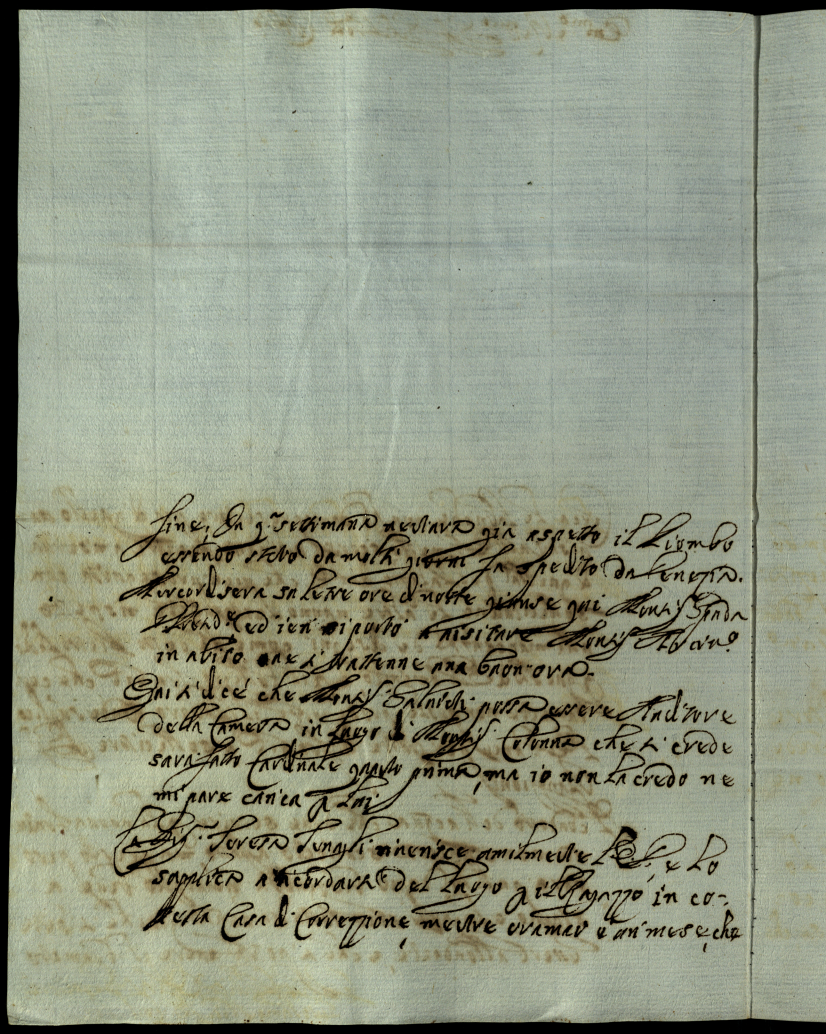 fine, In q.ᵃ settimana ne stava già aspetto il Piombo
essendo stato da molti giorni fa spedito da Venezia.
Mercordi sera su le tre ore di notte giunse qui Monsig.ʳ Spada
ed ieri si portò a visitare Monsig.ʳ
in abito ove si trattenne una buon'ora.
Qui si dice che Monsig.ʳ possa essere Auditore
della Camera in luogo di Monsig.ʳ Colonna che si crede
sarà fatto Cardinale quanto prima, ma io non la credo ne
mi pare carica p lui
La Sig.ʳᵃ Teresa riverisce umilmente V.S. e lo
supplica a ricordarsi del luogo p il Ragazzo in co-
testa Casa di Correzzione, mentre oramai è un mese, che